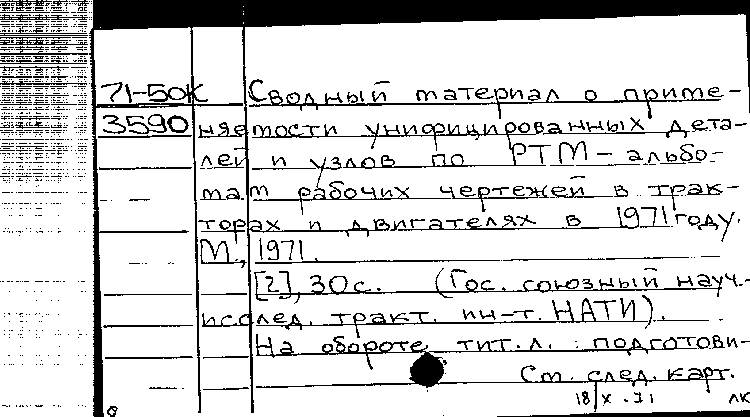 71-50К Сводный материал о приме-
3590 няемости унифицированных дета-
лей и узлов по РТМ-альбо-
мам рабочих чертежей в трак-
торах и двигателях в 1971 году.
М., 1971.
[2], 30 с. (Гос. союзный науч.-
исслед. тракт. ин-т. НАТИ).
На обороте тит. л.: подготови-
См. след. карт.
18/X-71 лк